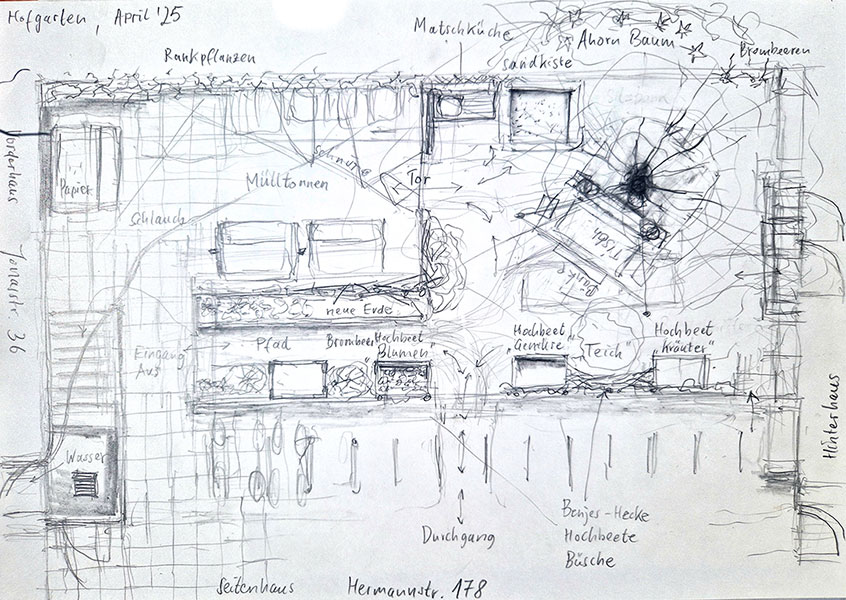 Hofgarten, April '25
Rankpflanzen
Matschküche
sandkiste
Ahorn Baum
Brombeeren
Sitzbank
Vorderhaus Jonasstr. 36
Papier
Schnüre
Tor
Mülltonnen
Schlauch
Tisch
Bänke
neue Erde
Eingang
Pfad
Brombeer
Hochbeet
"Blumen"
Hochbeet
"Gemüse"
"Teich"
Hochbeet
"Kräuter"
Wasser
Hinterhaus
Durchgang
Benjes-Hecke
Hochbeete
Büsche
Seitenhaus
Hermannstr. 178